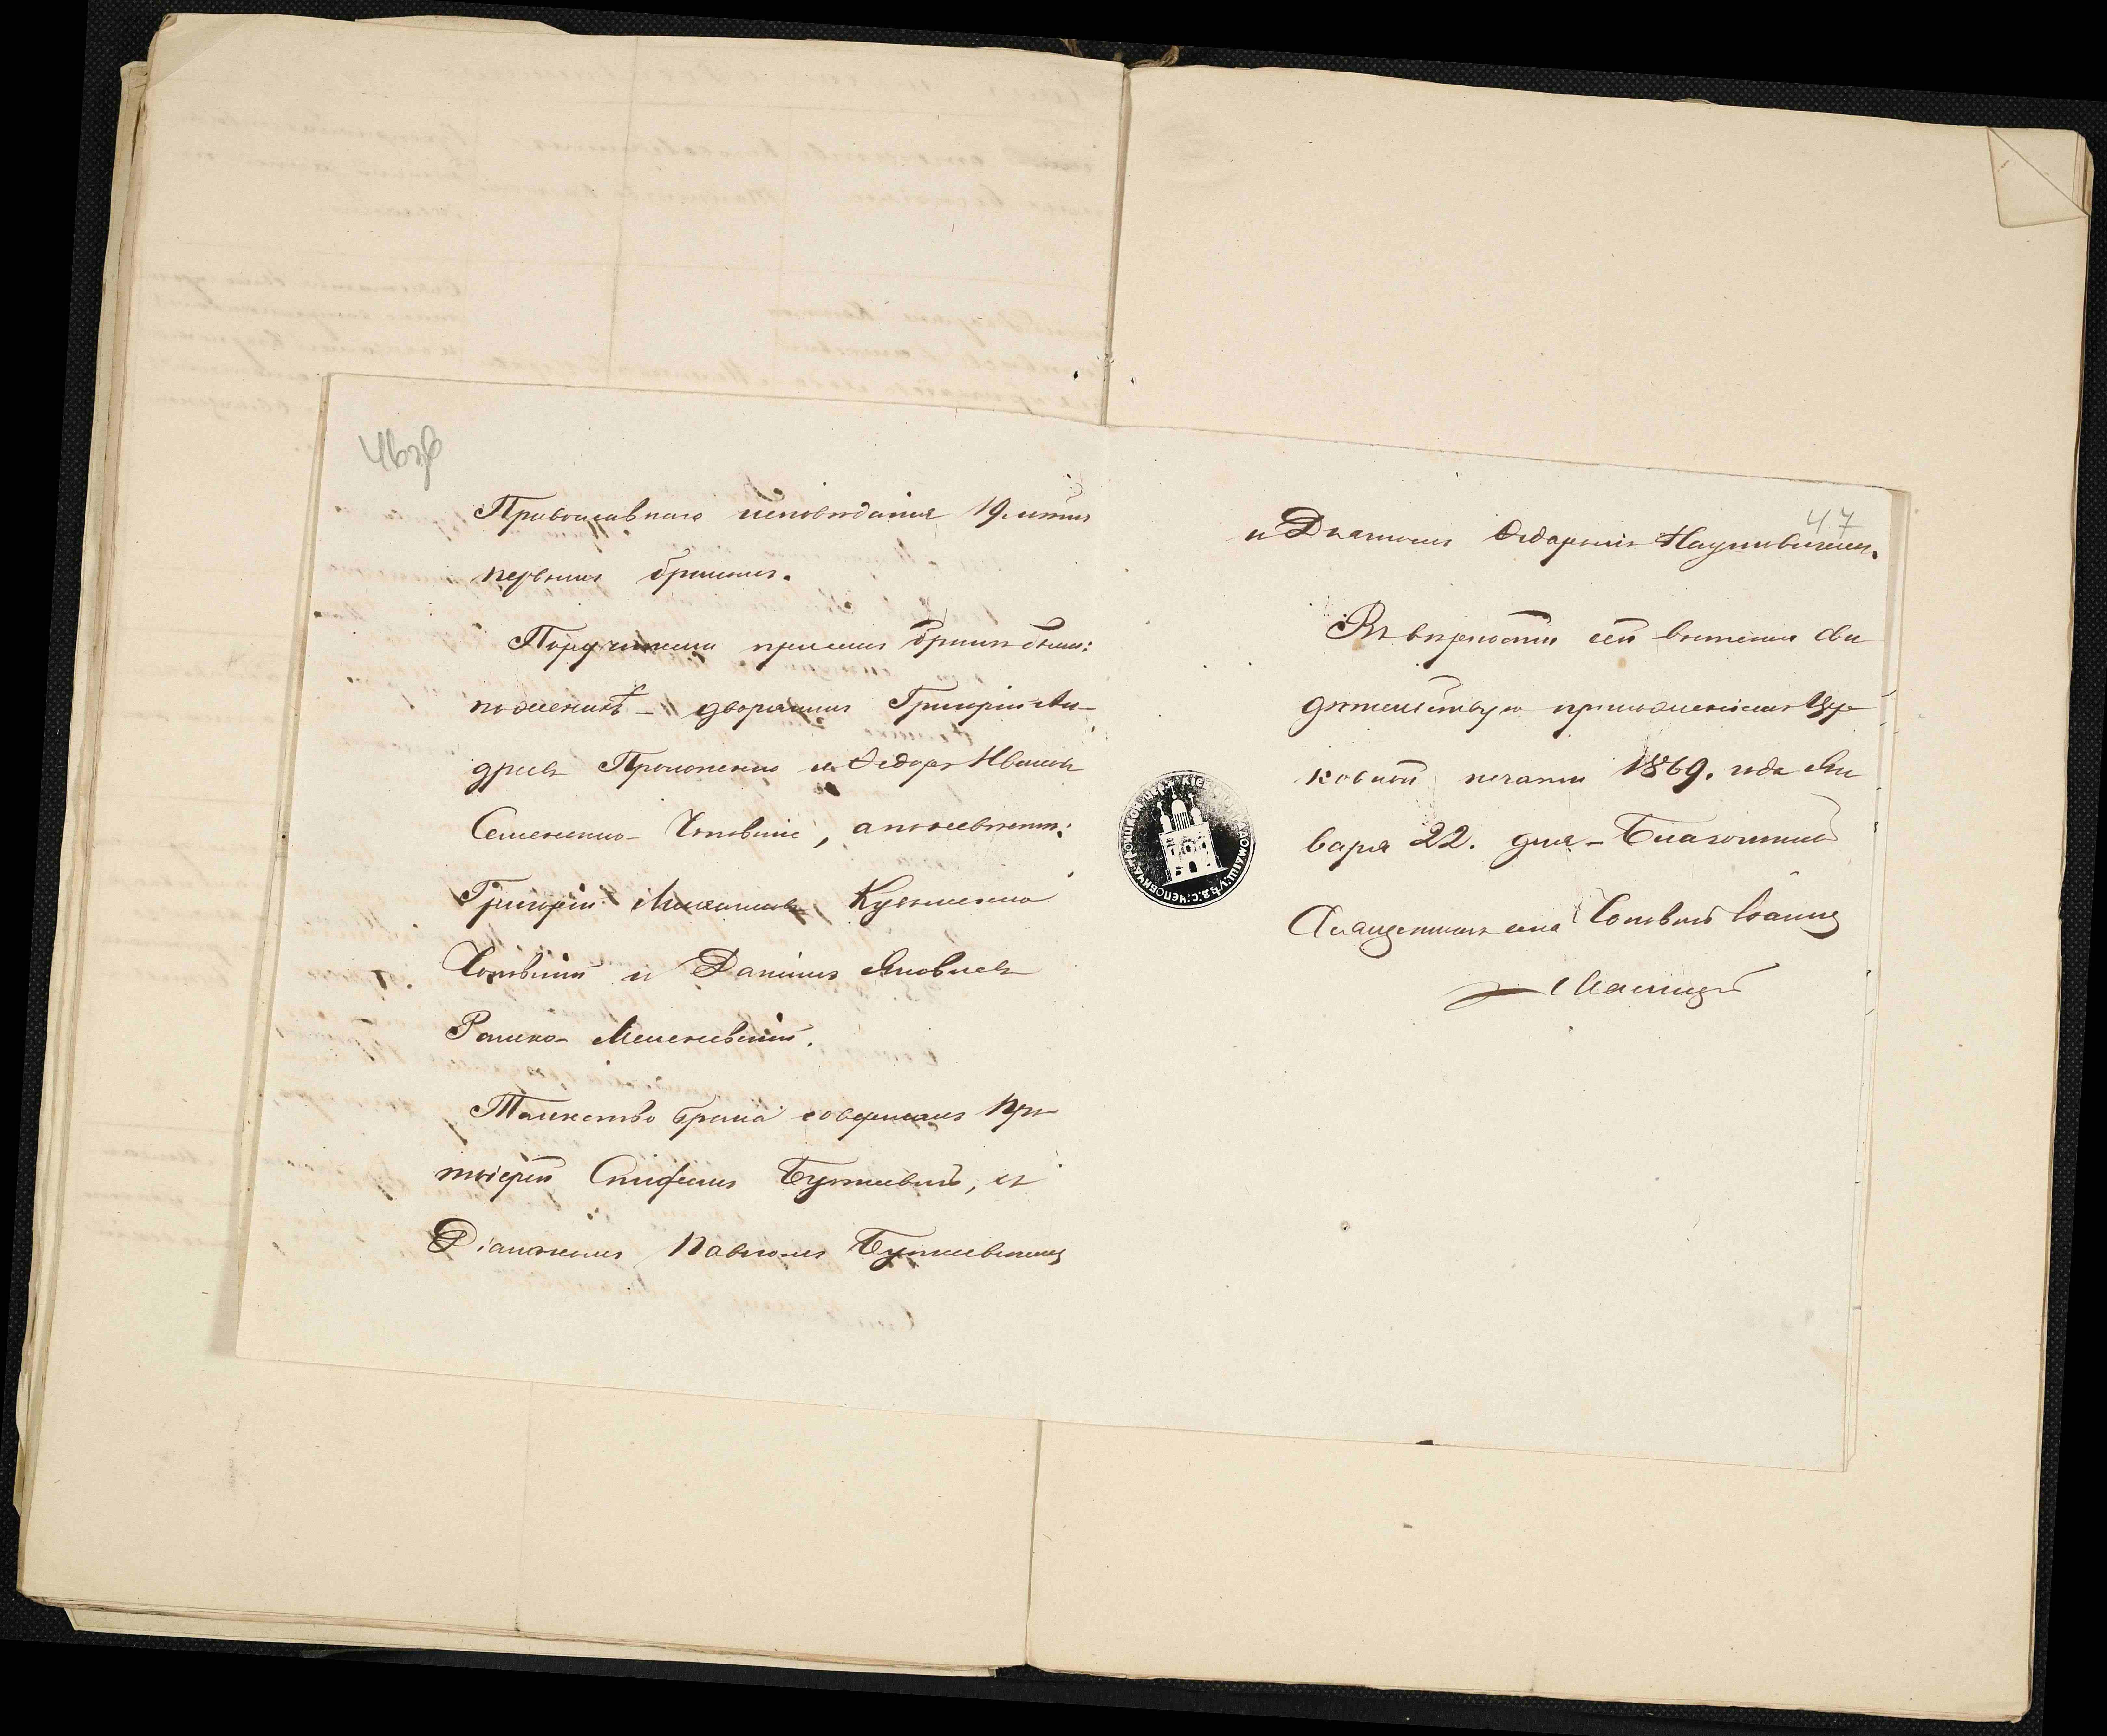 46об
Православнаго исповѣданія 19. лѣтъ
первымъ бракомъ.
Поручители при семъ бракѣ были:
по женихѣ – дворянинъ Григорій Ан-
дреевъ Прокопенко и Ѳедоръ Ивановъ
Семененко- Чоповскій, а по невѣстѣ:
Григорій Михаиловъ Кузьменко
Чоповскій и Даніилъ Яковлевъ
Ромко- Меленевскій.
Таинство брака совершалъ Про-
тоіерей Стефанъ Буткевичъ, съ
Діакономъ Павломъ Буткевичемъ
47
и Дьякомъ Ѳедоромъ Наумовичемъ.
Въ вѣрности сей выписки сви
дѣтельствую приложеніемъ Цер
ковной печати 1869. года Ян
варя 22. дня – Благочинный
Священникъ села Чоповичъ Іоаннъ